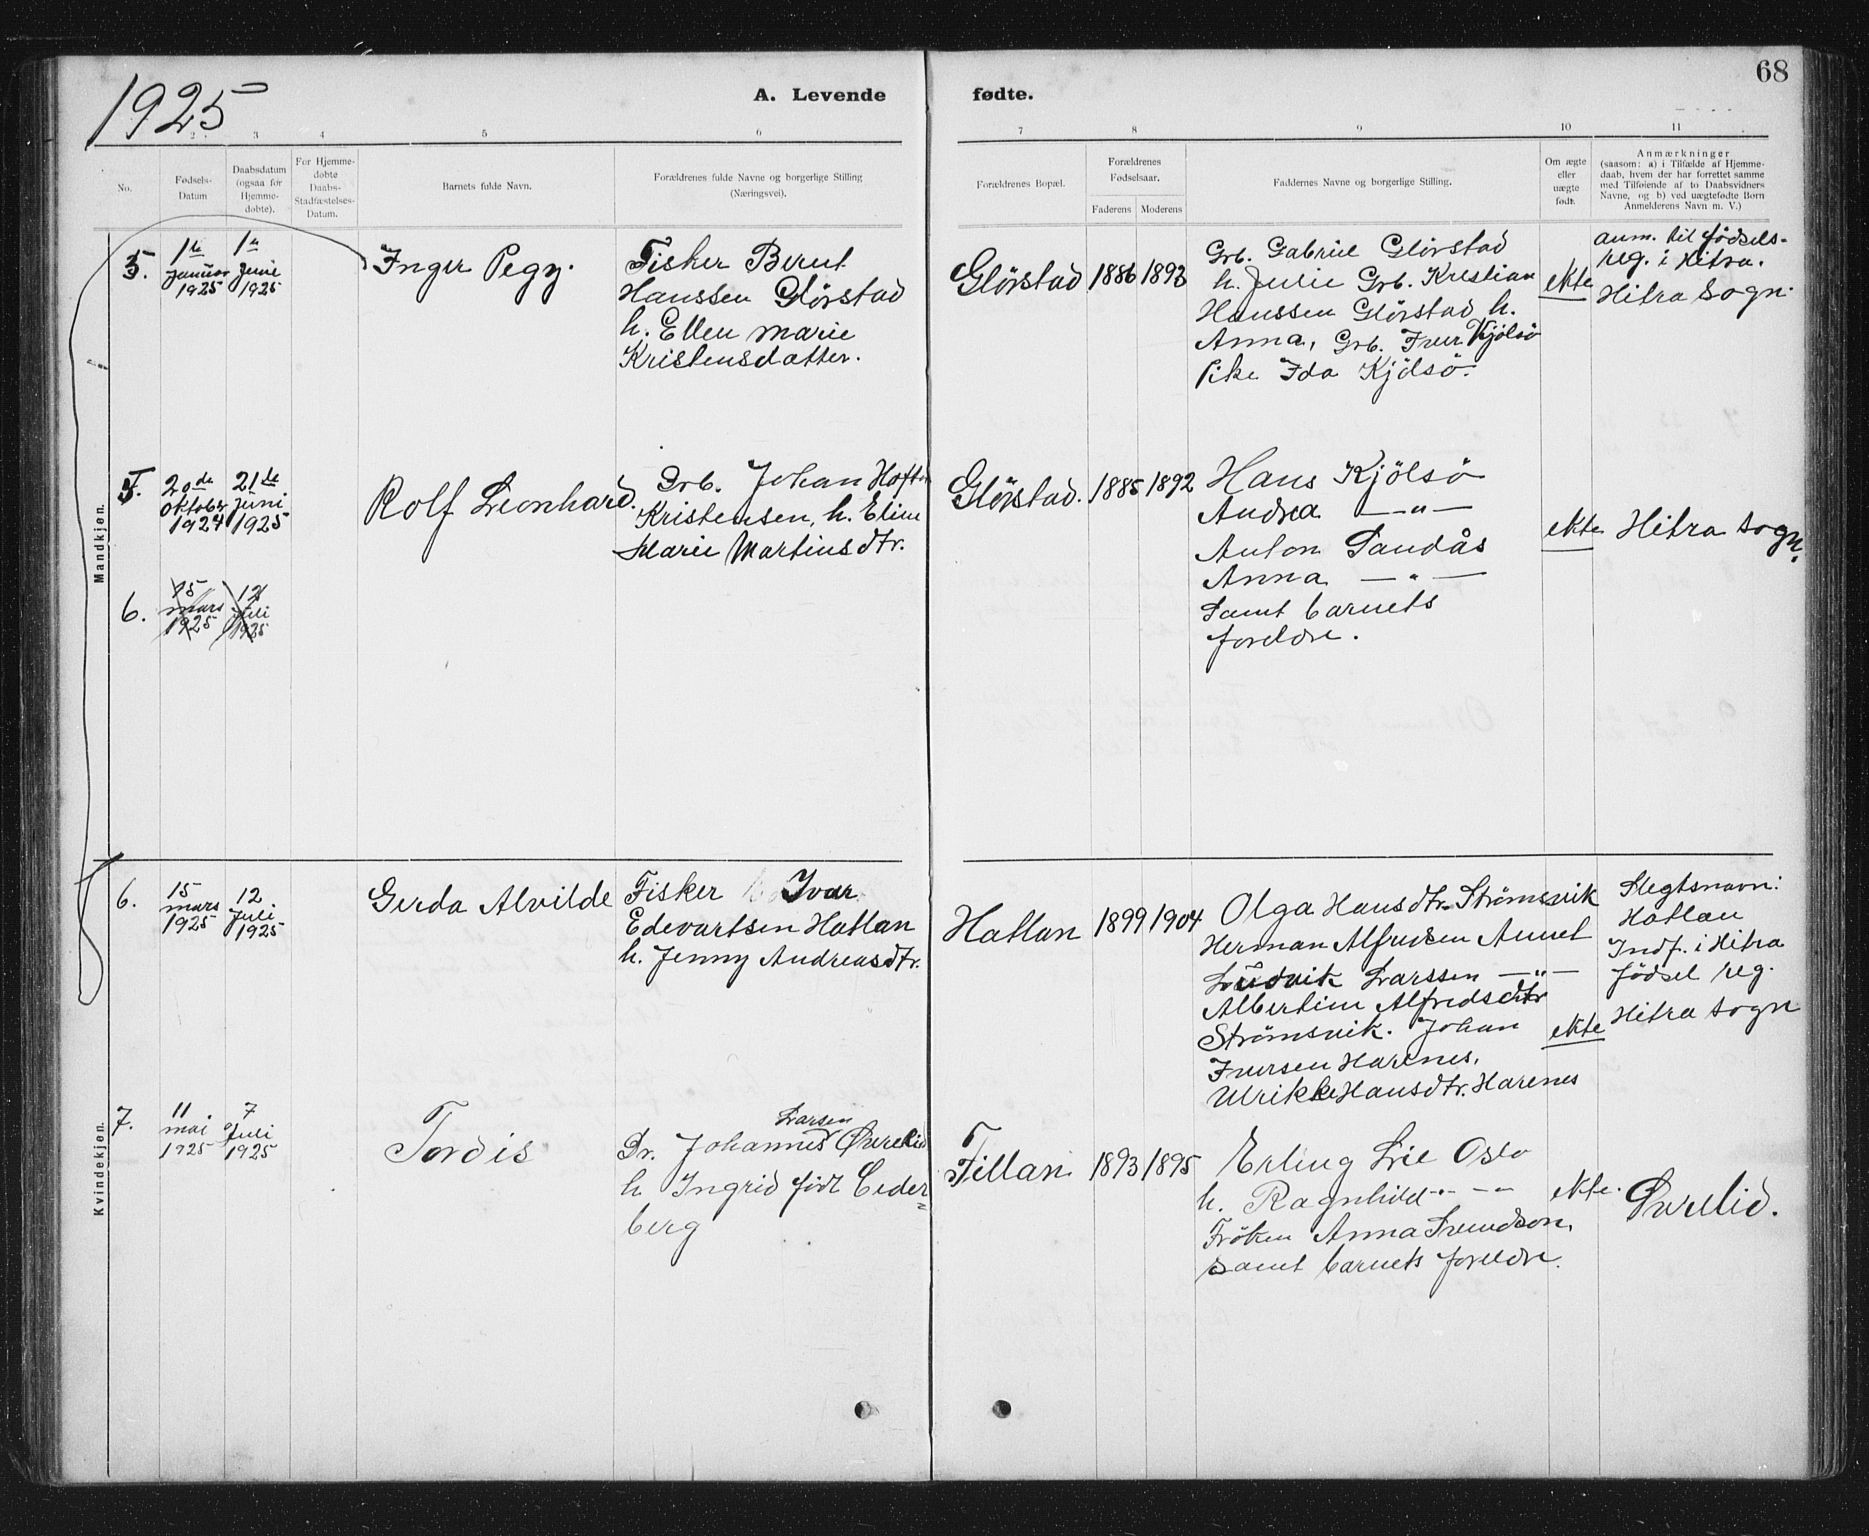 1925
A. Levende fødte.
68
2 3 4 5 6 7 8 9 10 11
No.
Fødsels-
Datum
Daabsdatum
(ogsaa for
Hjemme-
døbte).
For Hjemme-
døbte
Daabs-
Stadfæstelses-
Datum.
Barnets fulde Navn.
Forældrenes fulde Navne og borgerlige Stilling
(Næringsvei).
Forældrenes Bopæl.
Forældrenes
Fødselsaar.
Faderens Moderens
Faddernes Navne og borgerlige Stilling.
Om ægte
eller
uægte
født.
Anmærkninger
(saasom: a) i Tilfælde af Hjemme-
daab, hvem der har forrettet samme
med Tilføiende af to Daabsvidners
Navne, og b) ved uægtefødte Børn
Anmelderens Navn m. V.)
Mandkjøn.
5.
1ste
Januar
1925
1ste
Juni
1925
Inger Pegy.
Fisker Bernt
Hanssen Glörstad
h. Ellen Marie
Kristensdatter.
Glörstad 1886 1893
Grb. Gabriel Glörstad
h. Julie Grb. Kristian
Hanssen Glörstad h.
Anna, Grb. Iver Kjölsö
Pike Ida Kjölsö.
ekte
anm. til födsels-
reg. i Hitra.
Hitra Sogn.
5.
20de
Oktober
1924
21de
Juni
1925
Rolf Leonhard.
Grb. Johan Hofte
Kristensen, h. Eline
Marie Martinsdtr.
Glörstad. 1885 1892
Hans Kjölsö
Andrea —"—
Anton Sandås
Anna —"—
Samt barnets
foreldre.
ekte
Hitra sogn.
6.
15
mars
1925
12
Juli
1925
Kvindekjøn.
6.
15
mars
1925
12
Juli
1925
Gerda Alvilde
Fisker Ivar
Edevartsen Hatlan
h. Jenny Andreasdtr.
Hatlan 1899 1904
Olga Hansdtr. Strömsvik
Herman Alfredsen Aunet
Ludvik Larssen —"—
Albertine Alfredsdtr
Strömsvik. Johan
Iversen Harenes,
Ulrikke Hansdtr. Harenes
ekte
Slegtsnavn:
Hatlan
Indf. i Hitra
födsel reg.
Hitra sogn
7.
11
mai
1925
7
Juli
1925
Tordis
Larsen
Dr. Johannes Øvrelid
h Ingrid födt Ceder
berg
Fillan 1893 1895
Erling Lie Oslo
h. Ragnhild -"- -"-
Fröken Anna Svendson,
samt barnets foreldre.
ekte.
Øvrelid.